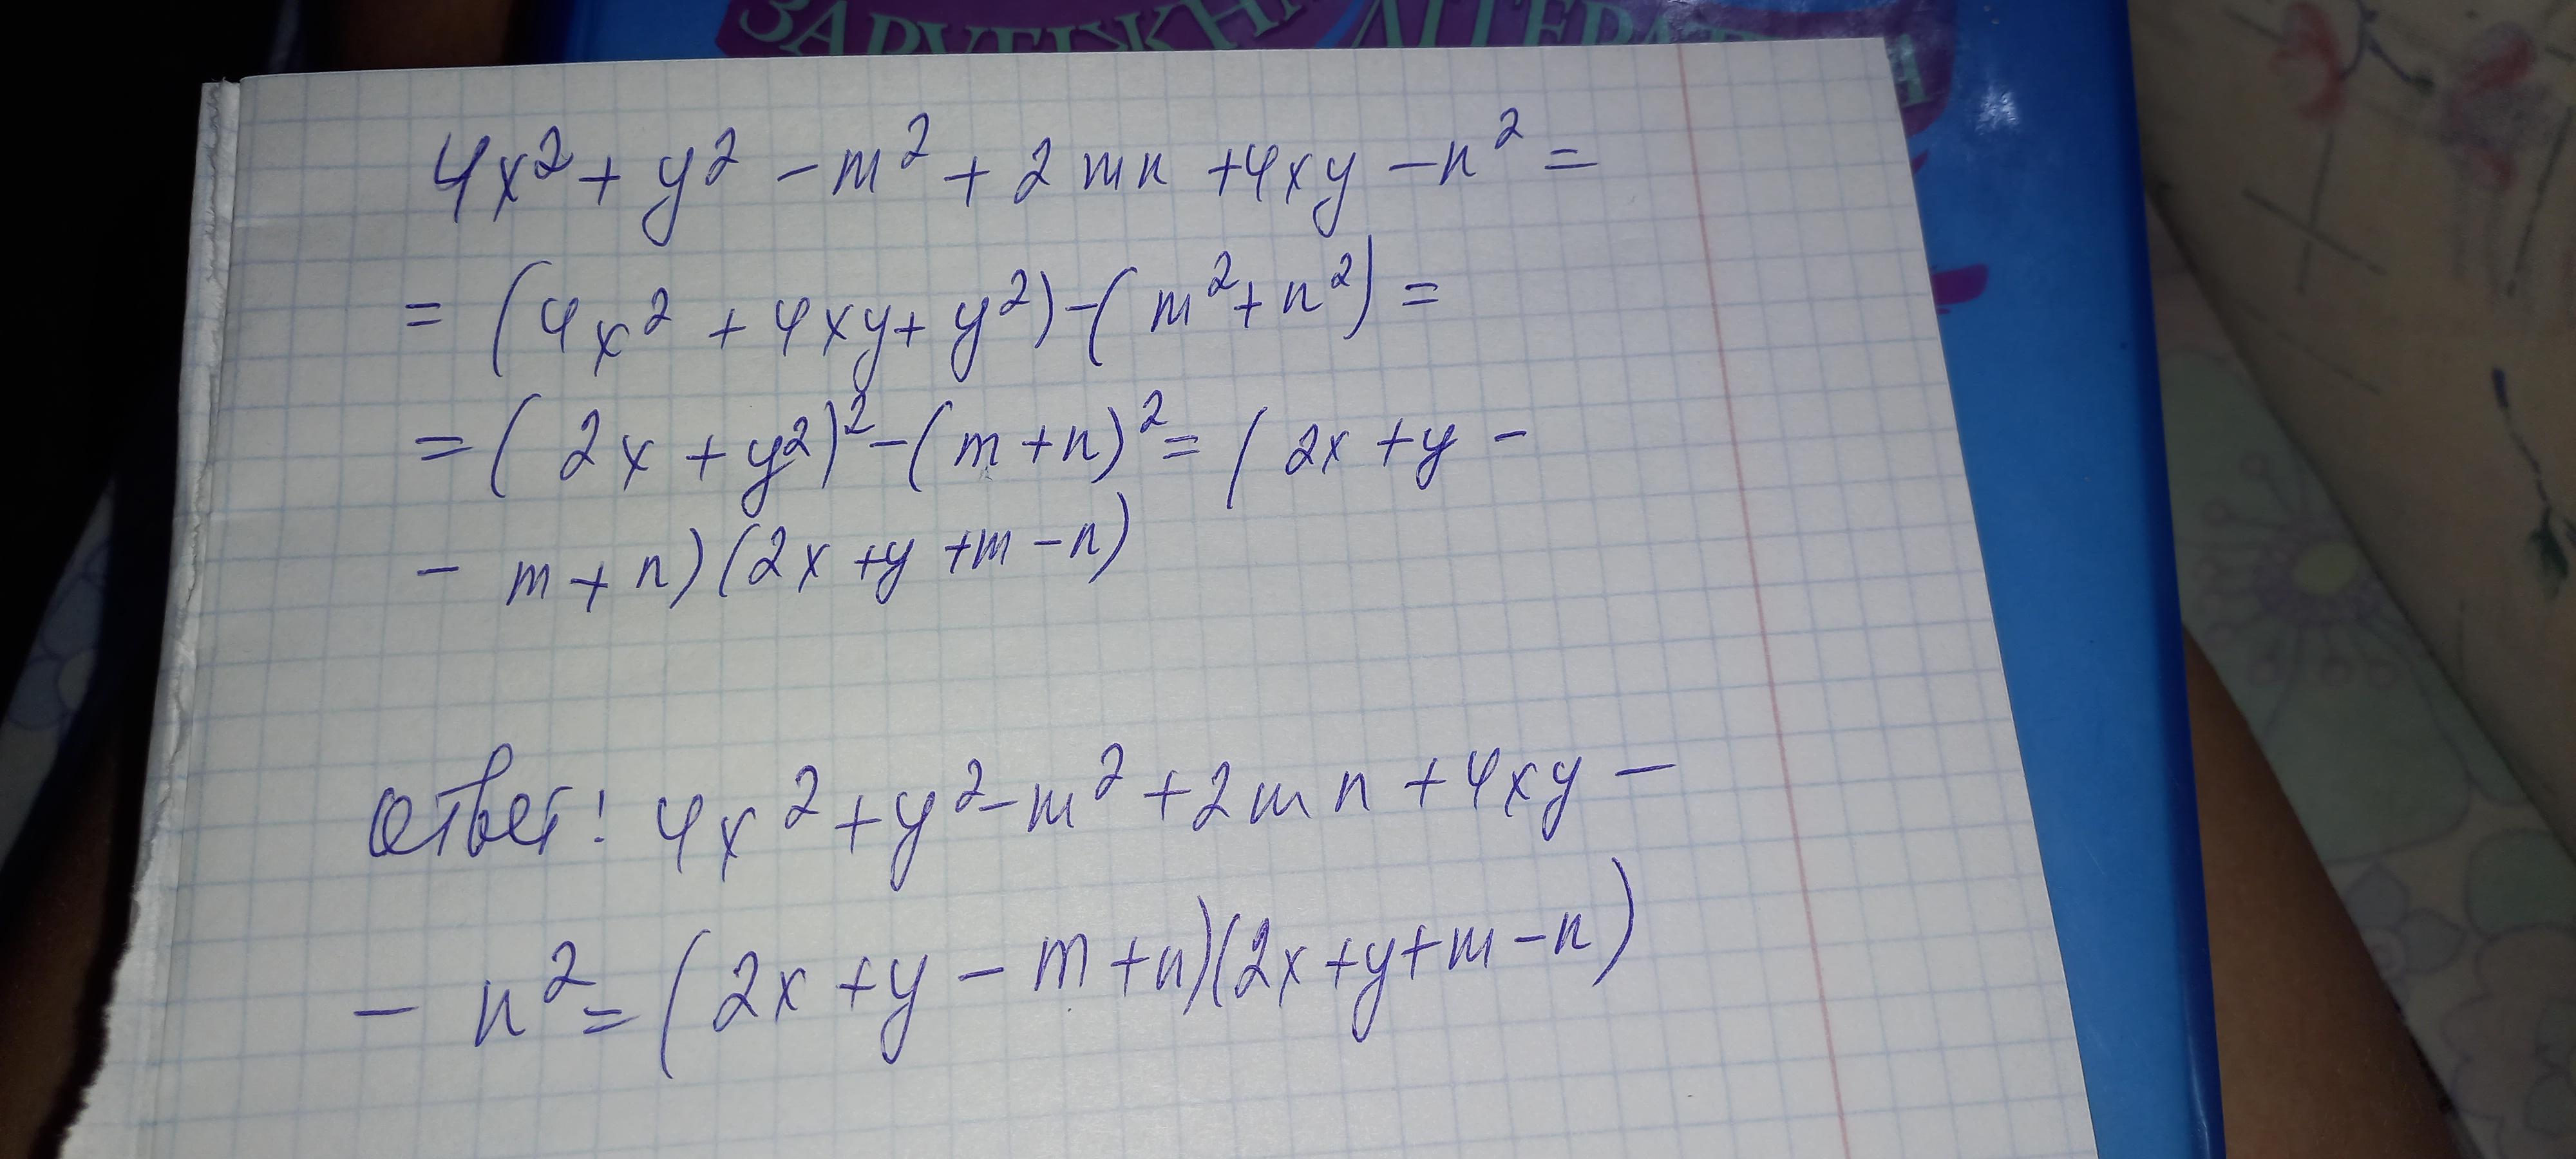 ЗАРУБІЖНА ЛІТЕРАТУРА
4x² + y² - m² + 2mn + 4xy - n² =
= (4x² + 4xy + y²) - (m² + n²) =
= (2x + y²)² - (m + n)² = (2x + y -
- m + n)(2x + y + m - n)
Ответ: 4x² + y² - m² + 2mn + 4xy -
- n² = (2x + y - m + n)(2x + y + m - n)